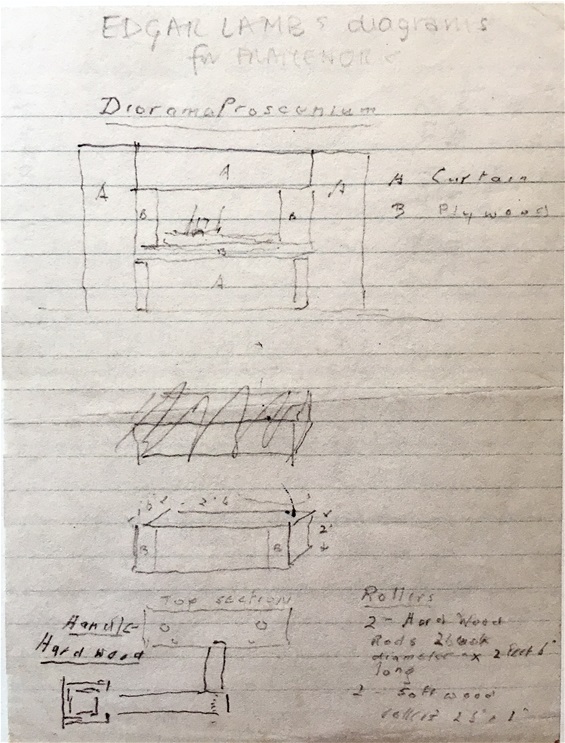 EDGAR LAMB's diagrams
for
Diorama Proscenium
A
A
A
A Curtain
B Plywood
B
B
B
A
2' 6"
2'
B
B
Top section
Handle
Hard wood
Rollers
2 - Hard Wood
Rods
diameter x 2 feet 6"
long
2 - Soft wood
rollers